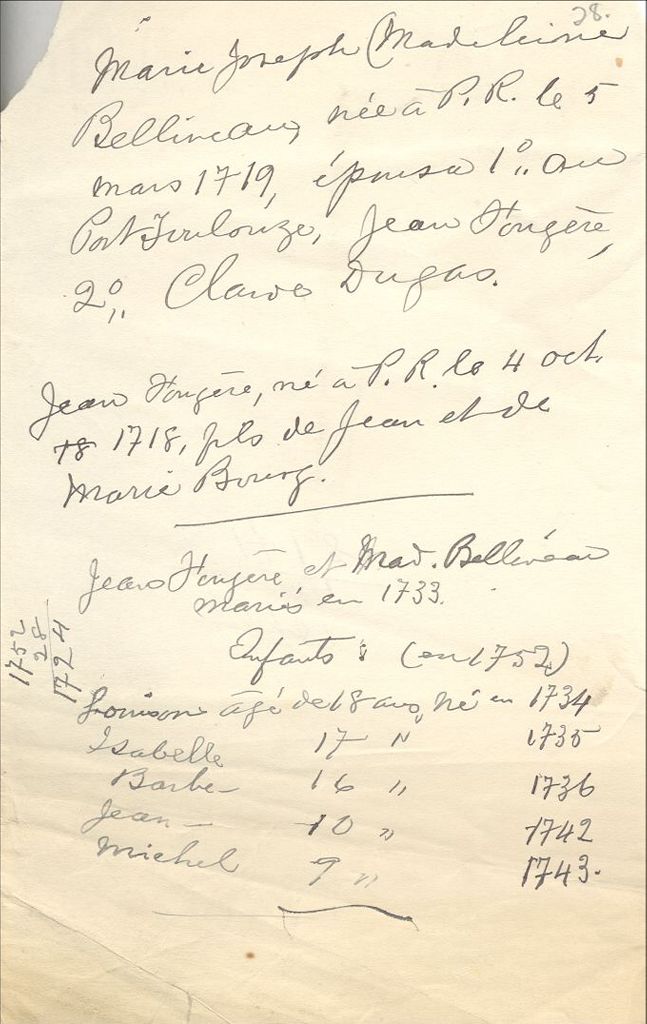 28.
Marie Joseph (Madeleine
Belliveau, née à P.R. le 5
mars 1719, épousa 1º,, au
Port Toulouze, Jean Fougère,
2º,, Claude Dugas.
Jean Fougère, né à P.R. le 4 oct.
18 1718, fils de Jean et de
Marie Bourg.
Jean Fougère et Mad. Belliveau
mariés en 1733.
Enfants : (en 1752)
Louison âgé de 18 ans, né en 1734
Isabelle 17 " 1735
Barbe — 16 " 1736
Jean — 10 " 1742
Michel 9 " 1743.
1752
28
1724